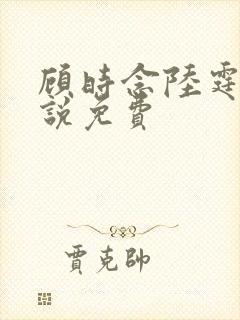 顾時念陸霆
說免費
賈克帥